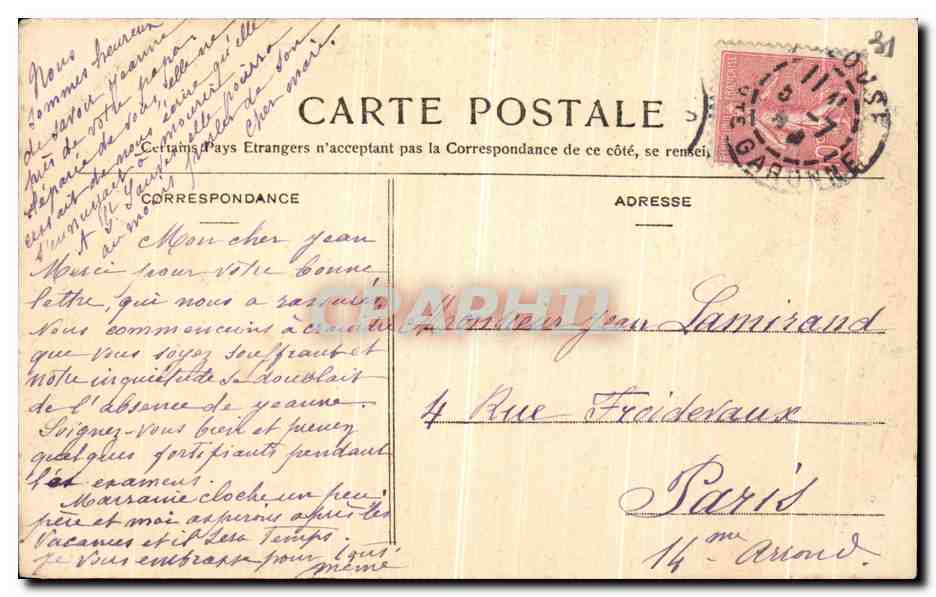 CARTE POSTALE
Certains Pays Etrangers n'acceptant pas la Correspondance de ce côté, se rensei
CORRESPONDANCE
Mon cher Jean
Merci pour votre bonne
lettre, qui nous a rassurés
Nous commencions à craindre
que vous soyez souffrant et
notre inquiétude se doublait
de l'absence de Jeanne.
Soignez-vous bien et prenez
quelques fortifiants pendant
les examens.
Marraine cloche un peu
père et moi aspirons après les
vacances et il sera temps.
Je vous embrasse pour tous
même
Nous
sommes heureux
de savoir Jeanne
près de votre papa.
séparée de vous, elle ne
cessait de nous écrire qu'elle
s'ennuyait à mourir
A St Sauveur elle pourra
au moins parler de son
cher mari.
ADRESSE
Monsieur Jean Lamirand
4 Rue Froidevaux
Paris
14me Arrond
31
OUSE
11
GARONNE
CPAPHIL